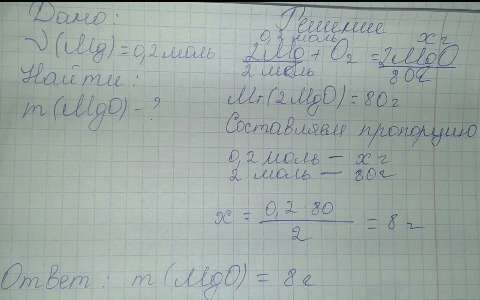 Дано:
ν(Mg)=0,2 моль
Найти:
m(MgO)-?
Решение
0,2 моль xг
2Mg + O2 = 2MgO
2 моль 80г
Mr(2MgO)=80г
Составляем пропорцию
0,2 моль — xг
2 моль — 80г
x = 0,2·80 / 2 = 8г
Ответ: m(MgO) = 8г